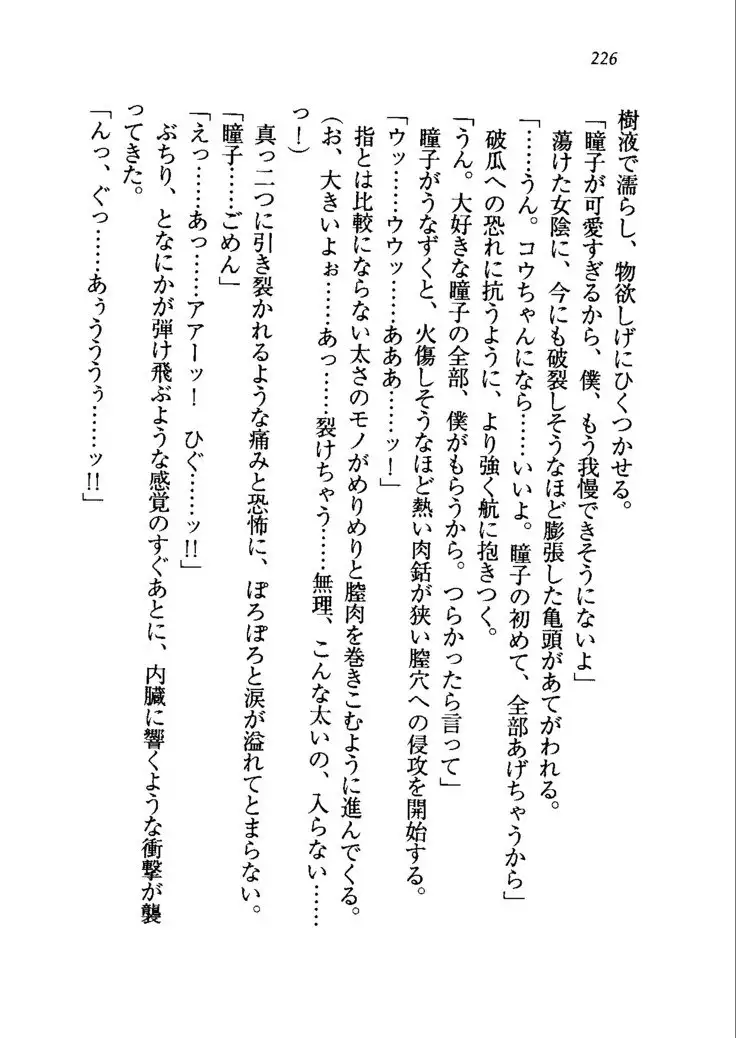 226
樹液で濡らし、物欲しげにひくつかせる。
「瞳子が可愛すぎるから、僕、もう我慢できそうにないよ」
蕩けた女陰に、今にも破裂しそうなほど膨張した亀頭があてがわれる。
「……うん。コウちゃんになら……いいよ。瞳子の初めて、全部あげちゃうから」
破瓜への恐れに抗うように、より強く航に抱きつく。
「うん。大好きな瞳子の全部、僕がもらうから。つらかったら言って」
瞳子がうなずくと、火傷しそうなほど熱い肉銛が狭い膣穴への侵攻を開始する。
「ウッ……ウウッ……あああ……ッ！」
指とは比較にならない太さのモノがめりめりと膣肉を巻きこむように進んでくる。
（お、大きいよぉ……あっ……裂けちゃう……無理、こんな太いの、入らない……
っ！）
真っ二つに引き裂かれるような痛みと恐怖に、ぽろぽろと涙が溢れてとまらない。
「瞳子……ごめん」
「えっ……あっ……アアーッ！　ひぐ……ッ!!」
ぶちり、となにかが弾け飛ぶような感覚のすぐあとに、内臓に響くような衝撃が襲
ってきた。
「んっ、ぐっ……あぅううぅ……ッ!!」